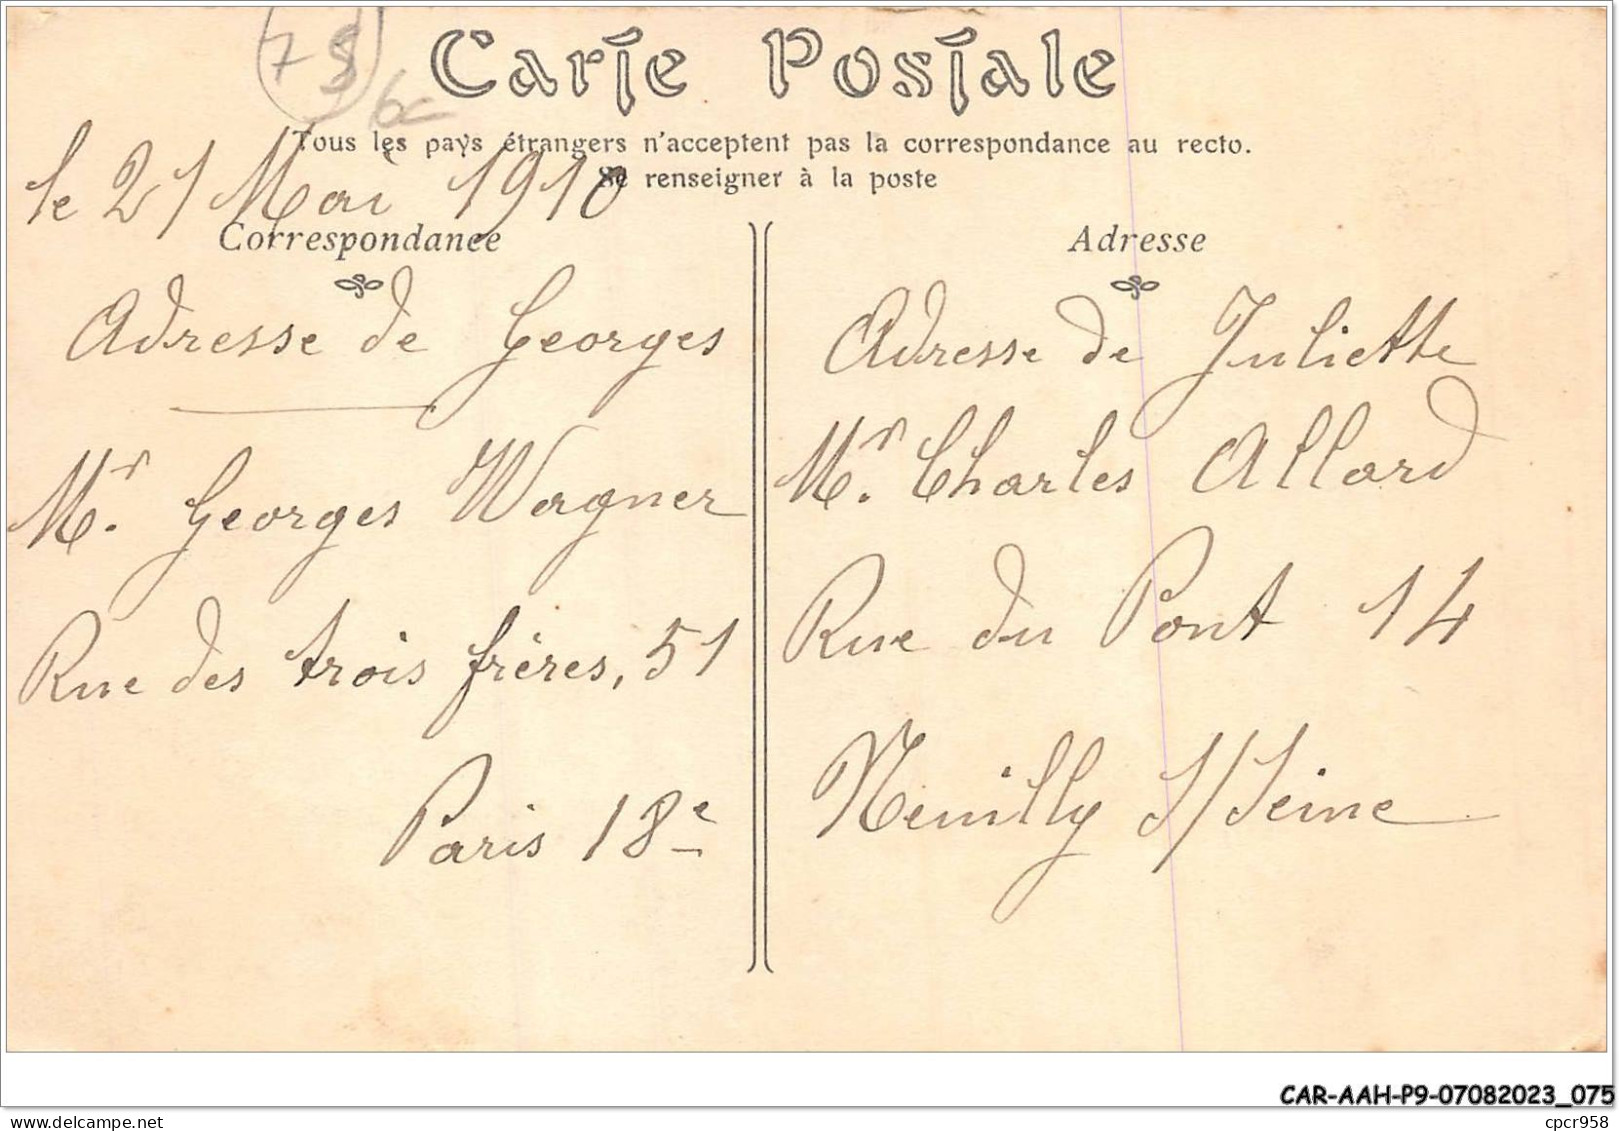 78
6c
Carte Postale
Tous les pays étrangers n'acceptent pas la correspondance au recto.
Se renseigner à la poste
le 21 Mai 1910
Correspondance
Adresse de Georges
Mr. Georges Wagner
Rue des trois frères, 51
Paris 18e
Adresse
Adresse de Juliette
Mr. Charles Allard
Rue du Pont 14
Neuilly s/Seine
CAR-AAH-P9-07082023_075
cpcr958